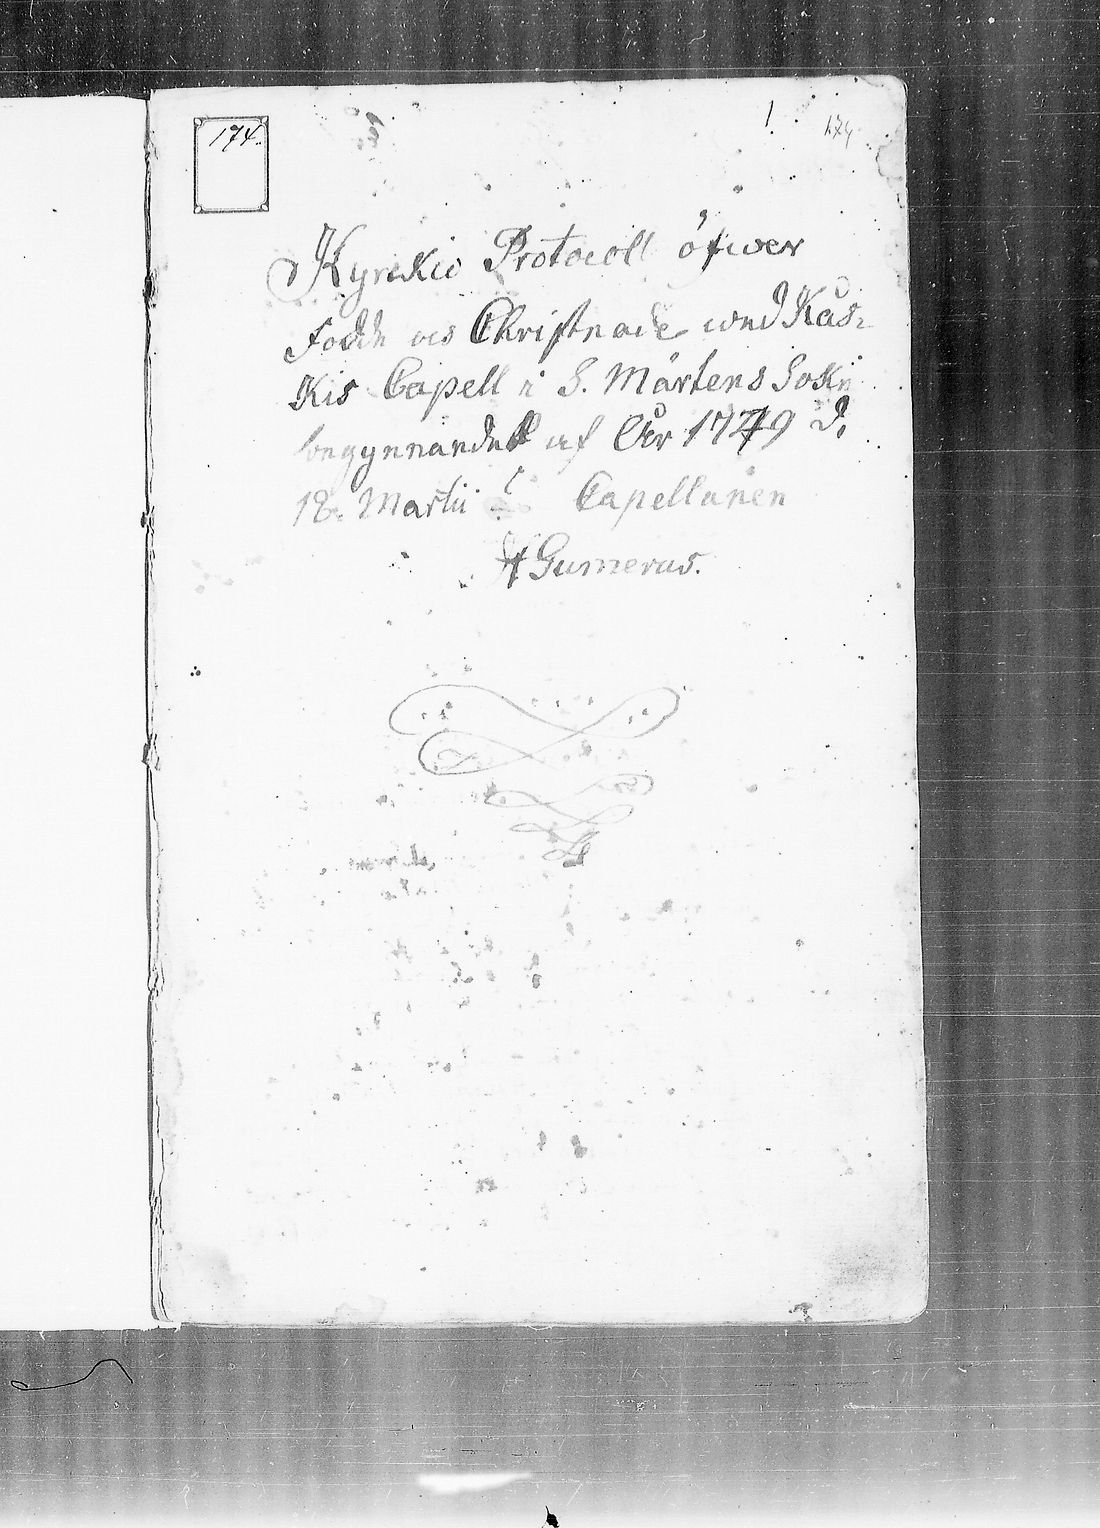 174.
1.
174
Kyrckio Protocoll öfwer
Födde och Christnade wed Kas-
Kis Capell i S. Mårtens Sokn
begynnandes af År 1749 d.
18. Martii Capellanen
H Gumerus.